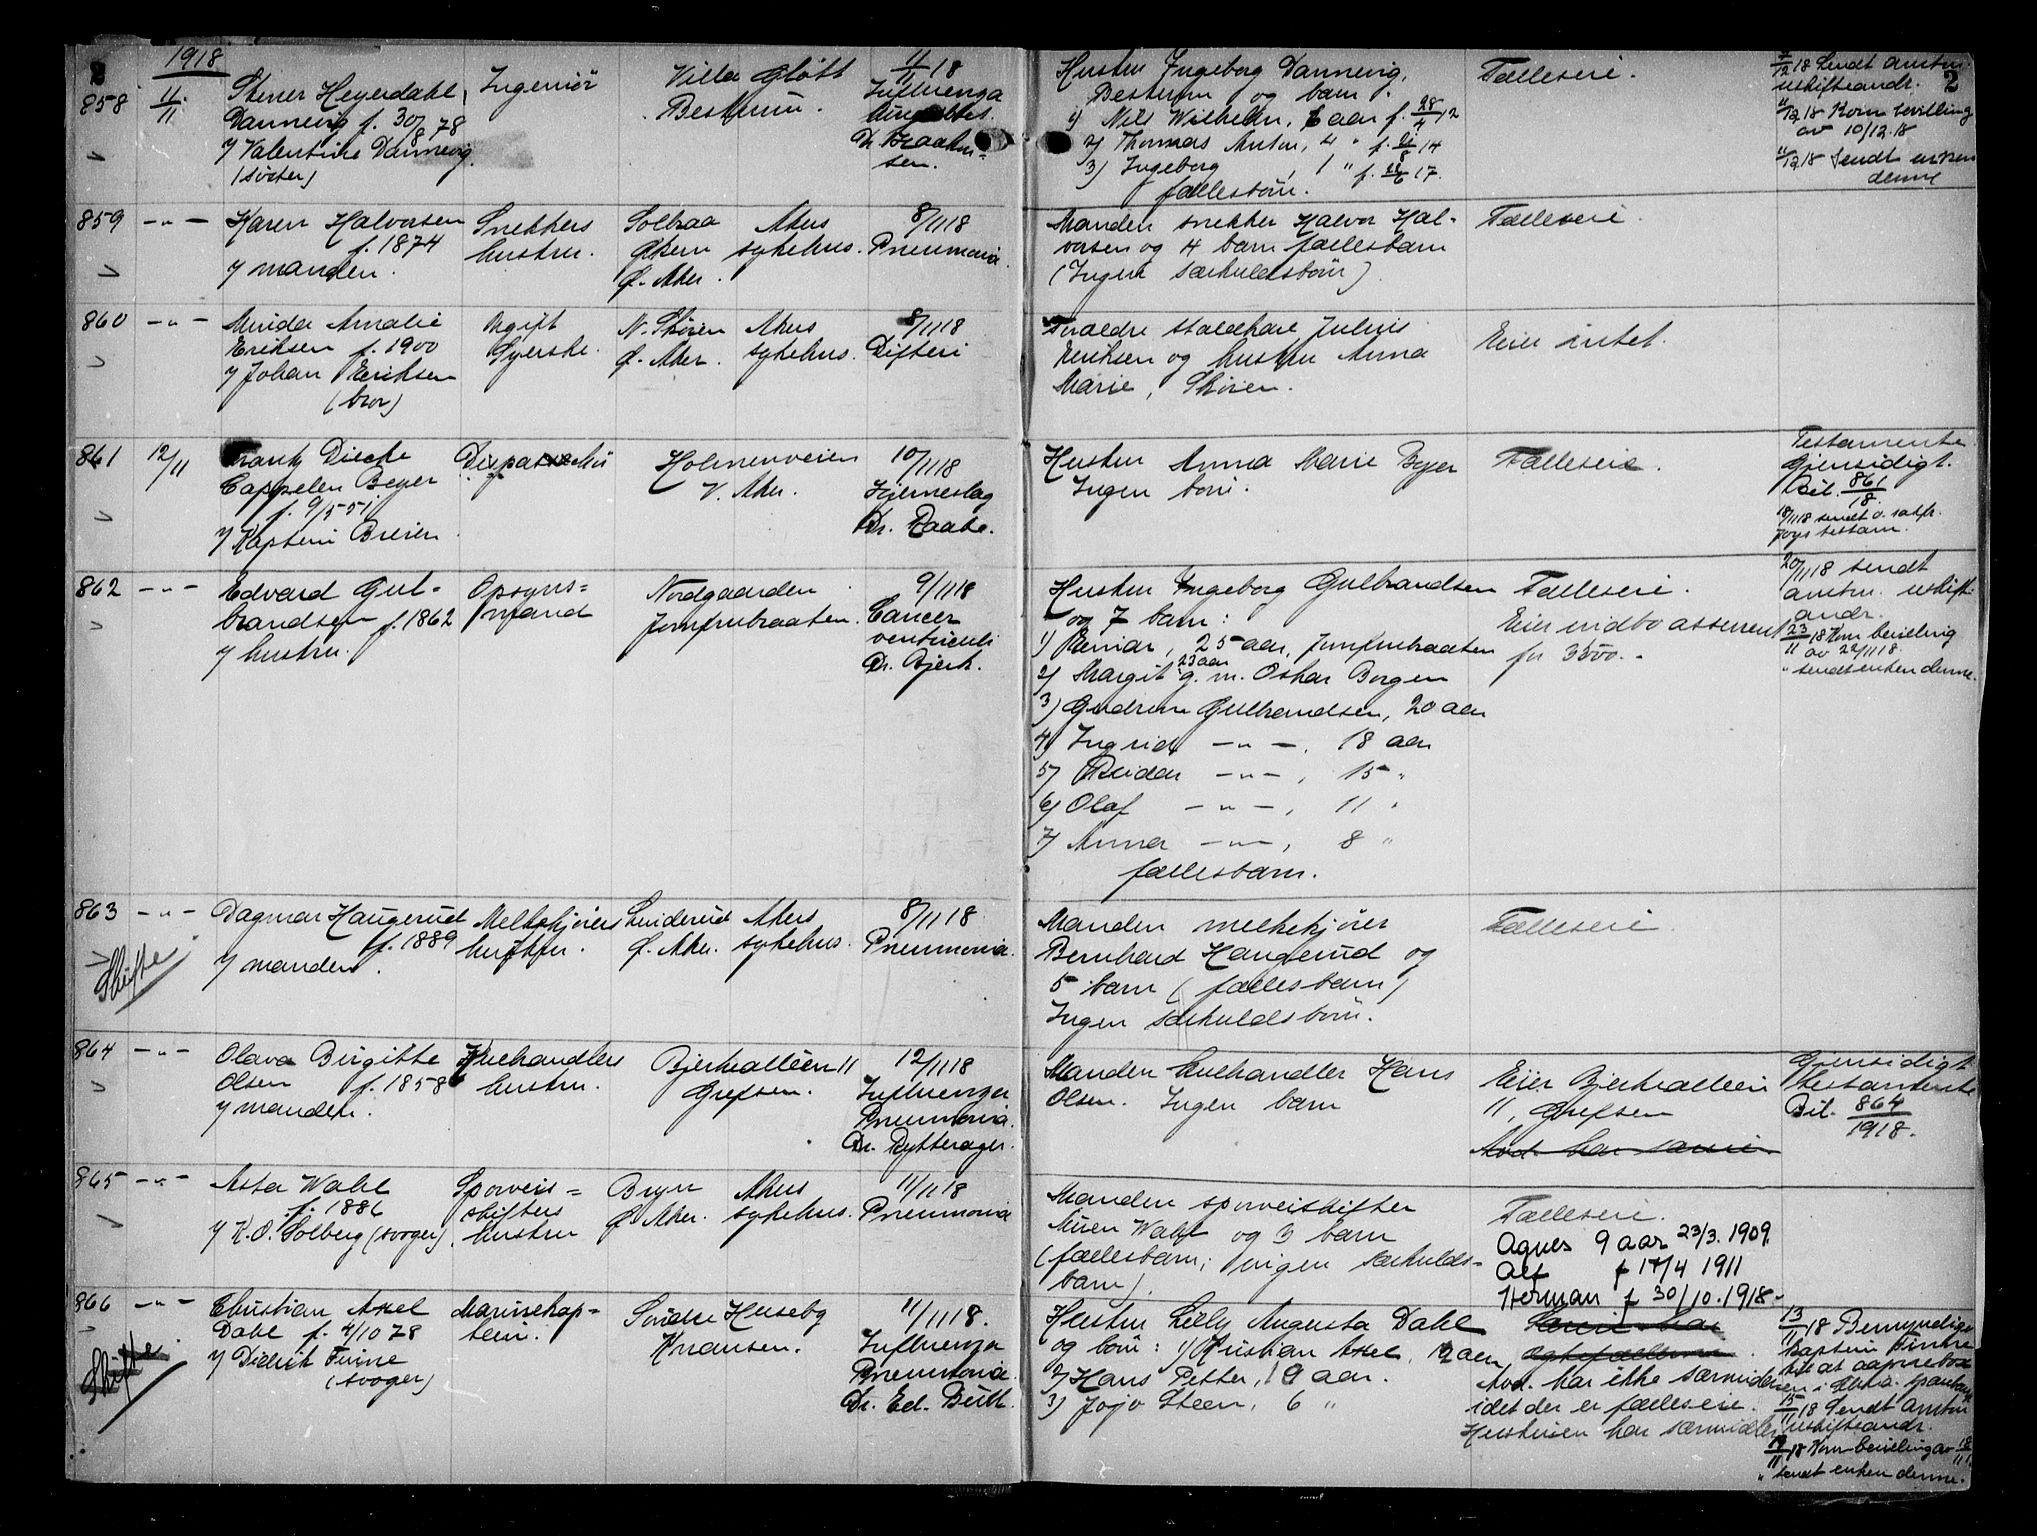 2
1918
858
11/11
Stener Heyerdahl
Dannevig f. 30/8 78
v/ Valentine Dannevig
(søster)
Ingeniør
Villa Gløtt
Bestum.
11/11 18
Influenza
Dr. Isaachsen.
Hustru Ingeborg Dannevig,
Bestum og barn:
1) Nils Wilhelm, 6 aar f. 28/4 12
2) Thomas Anton, 4 " f. 21/8 14
3) Ingeborg, 1 " f. 22/6 17.
fællesbørn.
Fælleseie.
2
7/12 18 Sendt amtm.
uskifteandr.
11/12 18 Kom bevilling
av 10/12 18
11/12 18 Sendt enken
denne
859
-"-
Karen Halvorsen
f. 1874
v/ manden.
Snekkers
hustru.
Solbraa
Økern
Ø. Aker.
Akers
sykehus.
8/11 18
Pneumonia.
Manden snekker Halvor Hal-
vorsen og 4 barn fællesbarn
(Ingen særkuldsbørn)
Fælleseie
860
-"-
Amalie
Eriksen f. 1900
v/ Johan Eriksen
(bror)
Ugift
Syerske.
N. Skøien
Ø. Aker.
Akers
sykehus.
8/11 18
Difteri
Forældre staldkarl Julius
Eriksen og hustru Anna
Marie, Skøien.
Eier intet.
861
12/11
Frantz Diecke
Cappelen Beyer
f. 9/5 51
v/ Kaptein Beyer
Dispachør
Holmenveien
V. Aker.
10/11 18
Hjerneslag
Dr. Raabe.
Hustru Anna Marie Beyer
Ingen børn.
Fælleseie.
Testamente
Gjensidigt.
Bil. 861/18.
18/11 18 sendt o.
testam.
862
-"-
Edvard Gul-
brandsen f. 1862
v/ hustru.
Opsyns=
mand
Nordgaarden
Jomfrubraaten.
9/11 18
Cancer
ventriculi
Dr. Bjerk.
Hustru Ingeborg Gulbrandsen
og 7 barn:
1) Reinar, 25 aar, Jomfrubraaten
2) Margit 23 aar g. m. Oskar Borgen
3) Gudrun Gulbrandsen, 20 aar
4) Ingrid -"-, 18 aar
5) Reidar -"-, 15 "
6) Olaf -"-, 11 "
7) Anna -"-, 8 "
fællesbarn.
Fælleseie.
Eier indbo assurert
for 3500.-
20/11 18 sendt
amtm. uskift.
andr.
23/11 18 Kom bevilling
av 22/11 18.
" sendt enken denne.
863
-"-
Skifte
Dagmar Haugerud
f. 1889
v/ manden.
Melkekjørers
hustru.
Linderud
Ø. Aker.
Akers
sykehus.
8/11 18
Pneumonia.
Manden melkekjører
Bernhard Haugerud og
5 barn (fællesbarn)
Ingen særkuldsbørn.
Fælleseie.
864
-"-
Olava Birgitte
Olsen f. 1858
v/ manden.
handlers
hustru.
Bjerkealléen 11
Grefsen.
12/11 18
Influenza
Pneumonia.
Dr. Rytterager.
Manden handler Hans
Olsen. Ingen barn
Eier Bjerkealléen
11, Grefsen
Avd. har særeie.
Gjensidigt
testamente
Bil. 864/1918.
865
-"-
Asta Wahl
f. 1886
v/ K. O. Solberg (svoger)
Sporveis=
skifters
hustru
Bryn
Ø. Aker.
Akers
sykehus.
11/11 18
Pneumonia
Manden sporveisskifter
Wahl og 3 barn
(fællesbarn; ingen særkulds-
barn)
Fælleseie.
Agnes 9 aar 23/3. 1909.
Alf f 17/4 1911
Herman f 30/10. 1918-
866
-"-
Skifte
Christian Axel
Dahl f. 4/10 78
v/ Didrik Finne
(svoger)
Marinekap=
tein.
Søndre Huseby
Knausen.
11/11 18.
Influenza
Pneumonia.
Dr. Ed. Bull.
Hustru Lilly Augusta Dahl
og børn: 1) Kristian Axel, 12 aar,
2) Hans Petter, 9 aar.
3) Jojo Steen, 6 "
Avd. har ikke særmidler
idet der er fælleseie.
Hustruen har særmidler
13/11 18 Bemyndiget
kaptein Finne
til at aapne box
15/11 18 Sendt amtm
uskifteandr.
19/11 18 Kom bevilling av 18/11
" sendt enken denne.